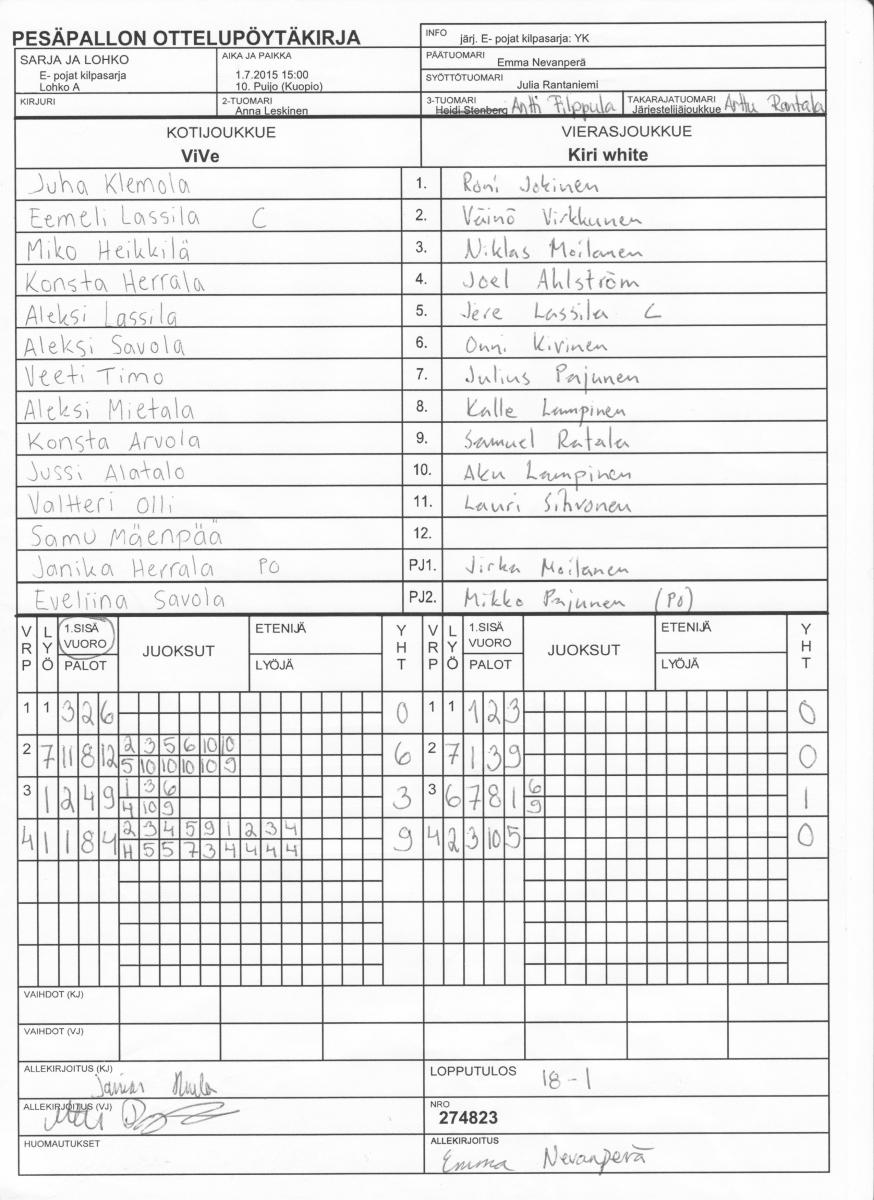 PESÄPALLON OTTELUPÖYTÄKIRJA
INFO järj. E- pojat kilpasarja: YK
SARJA JA LOHKO
E- pojat kilpasarja
Lohko A
AIKA JA PAIKKA
1.7.2015 15:00
10. Puijo (Kuopio)
PÄÄTUOMARI
Emma Nevanperä
SYÖTTÖTUOMARI
Julia Rantaniemi
KIRJURI
2-TUOMARI
Anna Leskinen
3-TUOMARI
Heidi Stenberg Antti Filppula
TAKARAJATUOMARI
Järjestelijäjoukkue Arttu Rantala
KOTIJOUKKUE
ViVe
VIERASJOUKKUE
Kiri white
Juha Klemola 1. Roni Jokinen
Eemeli Lassila C 2. Väinö Virkkunen
Miko Heikkilä 3. Niklas Moilanen
Konsta Herrala 4. Joel Ahlström
Aleksi Lassila 5. Jere Lassila C
Aleksi Savola 6. Onni Kivinen
Veeti Timo 7. Julius Pajunen
Aleksi Mietala 8. Kalle Lampinen
Konsta Arvola 9. Samuel Ratala
Jussi Alatalo 10. Aku Lampinen
Valtteri Olli 11. Lauri Sihvonen
Samu Mäenpää 12.
Janika Herrala PO PJ1. Jirka Moilanen
Eveliina Savola PJ2. Mikko Pajunen (PO)
VRP LYÖ 1.SISÄ VUORO PALOT JUOKSUT ETENIJÄ LYÖJÄ YHT VRP LYÖ 1.SISÄ VUORO PALOT JUOKSUT ETENIJÄ LYÖJÄ YHT
1 1 3 2 6 0 1 1 1 2 3 0
2 7 11 8 12 2 3 5 6 10 10 6 2 7 1 3 9 0
5 10 10 10 10 9
3 1 2 4 9 1 3 6 3 3 6 7 8 1 6 1
4 10 9 9
4 1 1 8 4 2 3 4 5 9 1 2 3 4 9 4 2 3 10 5 0
4 5 5 7 3 4 4 4 4
VAIHDOT (KJ)
VAIHDOT (VJ)
ALLEKIRJOITUS (KJ)
LOPPUTULOS 18-1
ALLEKIRJOITUS (VJ)
NRO
274823
HUOMAUTUKSET
ALLEKIRJOITUS
Emma Nevanperä